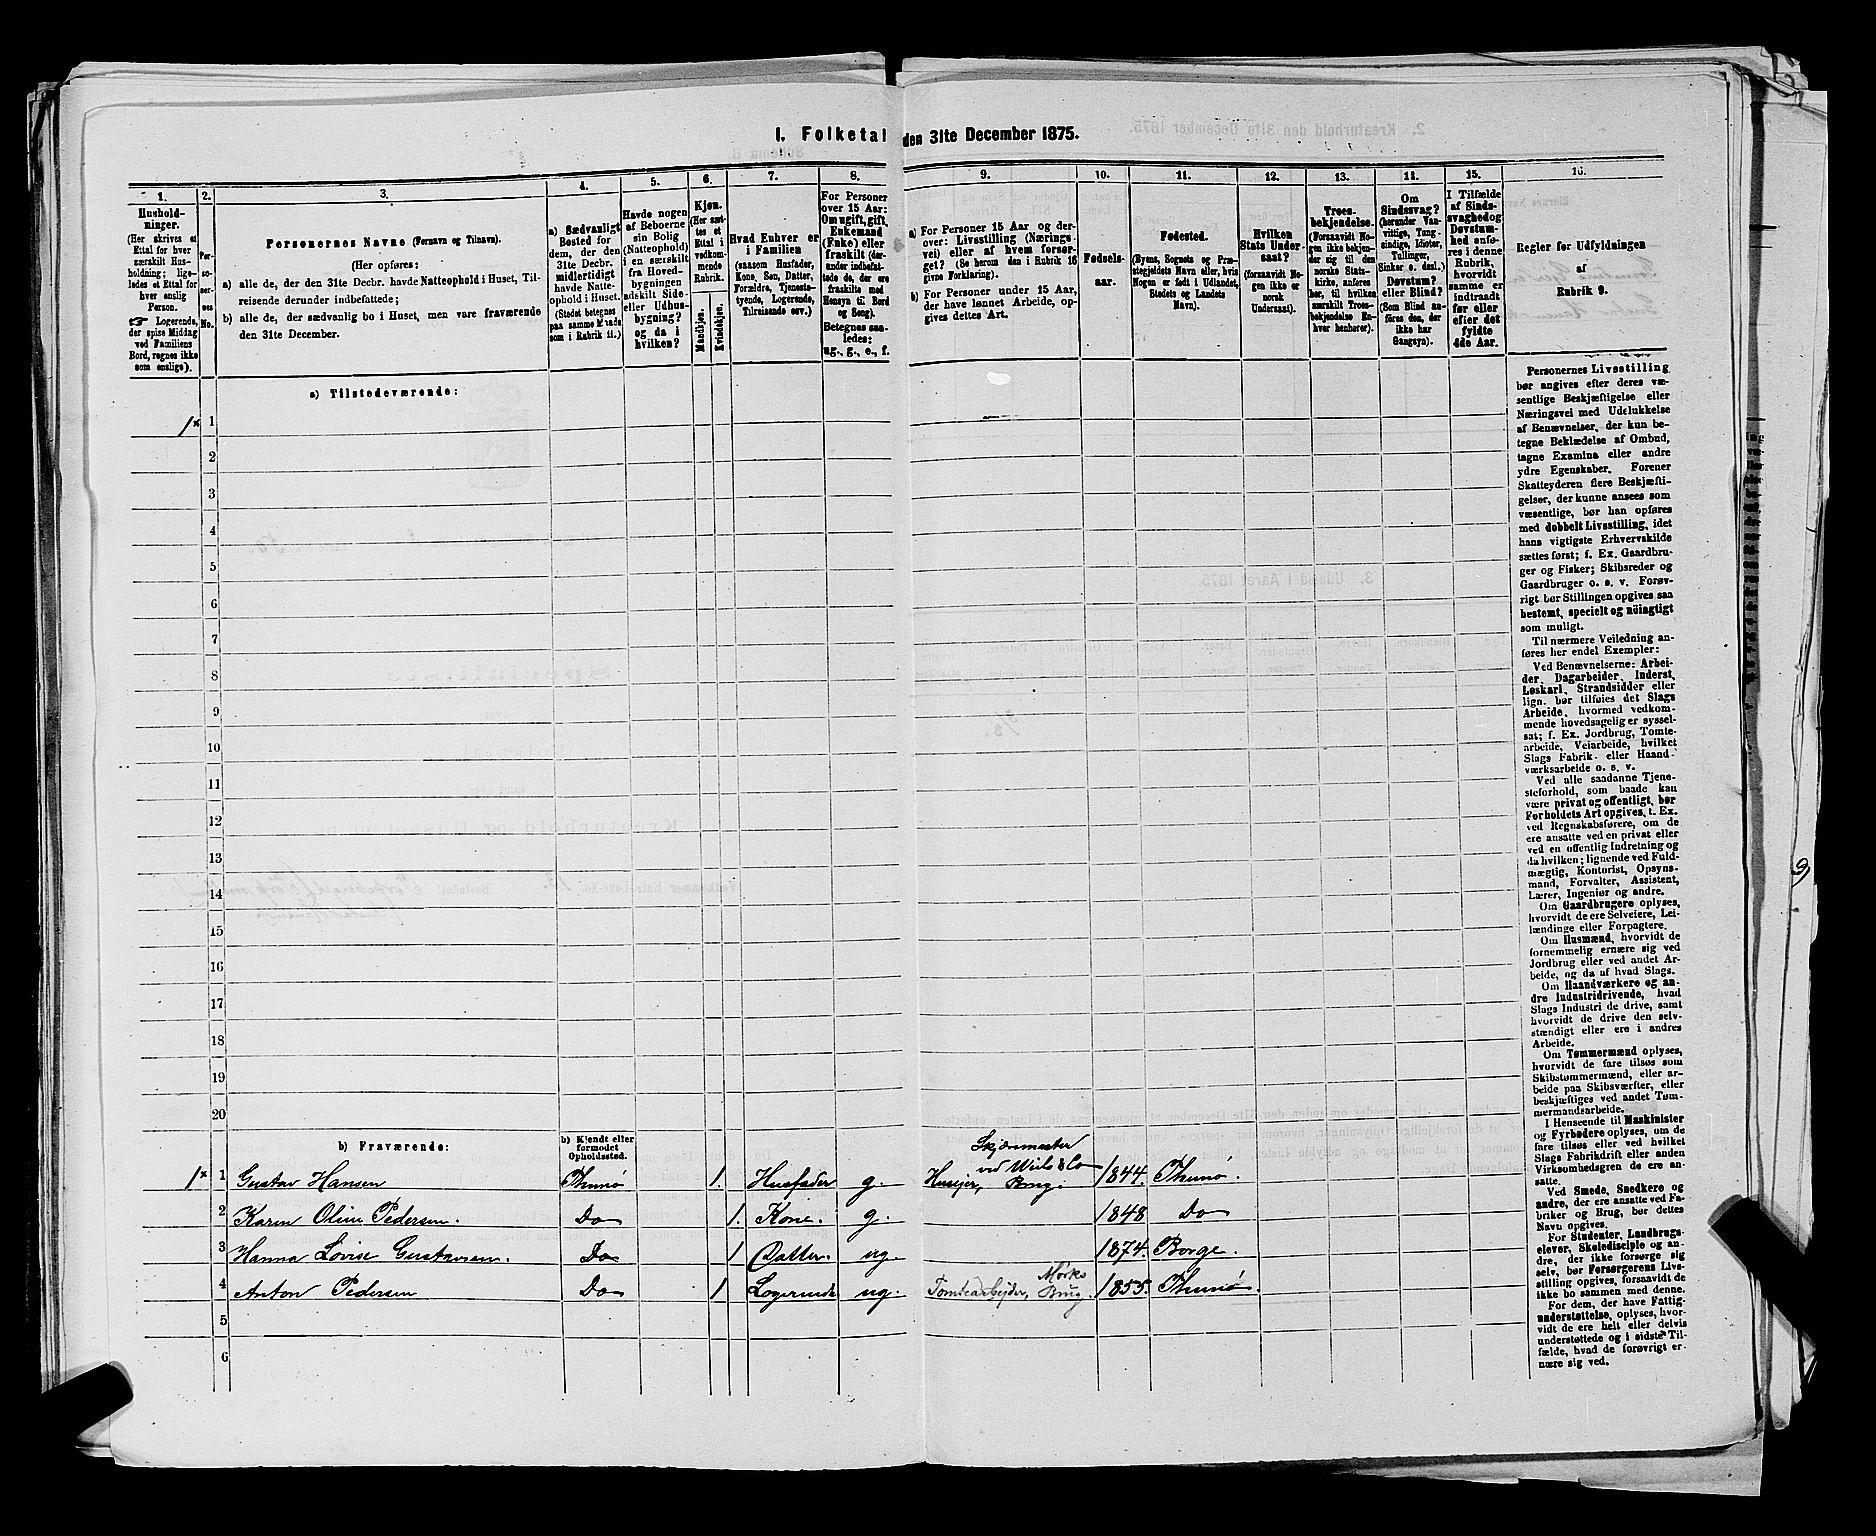 I. Folketal den 31te December 1875.
1.
Hushold-
ninger.
(Her skrives et
Ettal for hver
særskilt Hus-
holdning; lige-
ledes et Ettal for
hver enslig
Person.
☞ Logerende,
der spise Middag
ved Familiens
Bord, regnes ikke
som enslige).
2.
Per-
so-
ner-
nes
No.
3.
Personernes Navne (Fornavn og Tilnavn).
(Her opføres:
a) alle de, der den 31te Decbr. havde Natteophold i Huset, Til-
reisende derunder indbefattede;
b) alle de, der sædvanlig bo i Huset, men vare fraværende
den 31te December.
4.
a) Sædvanligt
Bosted for
dem, der den
31te Decbr.
midlertidigt
havde Natte-
ophold i Huset.
(Stedet betegnes
paa samme Maade
som i Rubrik 11.)
5.
Havde nogen
af Beboerne
sin Bolig
(Natteophold)
i en særskilt
fra Hoved-
bygningen
adskilt Side-
eller Udhus-
bygning?
og da i
hvilken?
6.
Kjøn.
(Her sæt-
tes et
Ettal i
vedkom-
mende
Rubrik.
Mandkjøn.
Kvindekjøn.
7.
Hvad Enhver er
i Familien
(saasom Husfader,
Kone, Søn, Datter,
Forældre, Tjeneste-
tyende, Logerende,
Tilreisende osv.)
8.
For Personer
over 15 Aar:
Om ugift, gift,
Enkemand
(Enke) eller
fraskilt (der-
under indbefat-
tede de, der ere
fraskilte med
Hensyn til Bord
og Seng).
Betegnes saa-
ledes:
ug., g., e., f.
9.
a) For Personer 15 Aar og der-
over: Livsstilling (Nærings-
vei) eller af hvem forsør-
get? (Se herom den i Rubrik 16
givne Forklaring).
b) For Personer under 15 Aar,
der have lønnet Arbeide, op-
gives dettes Art.
10.
Fødsels-
aar.
11.
Fødested.
(Byens, Sognets og Præ-
stegjeldets Navn eller, hvis
Nogen er født i Udlandet,
Stedets og Landets
Navn).
12.
Hvilken
Stats Under-
saat?
(forsaavidt No-
gen ikke er
norsk
Undersaat).
13.
Troes-
bekjendelse.
(Forsaavidt No-
gen ikke bekjen-
der sig til den
norske Stats-
kirke, anføres
her, til hvilken
særskilt Troes-
bekjendelse En-
hver henhører).
14.
Om
Sindssvag?
(herunder Van-
vittige, Tung-
sindige, Idioter,
Tullinger,
Sinker o. desl.)
Døvstum?
eller Blind?
(Som Blind an-
føres den, der
ikke har
Gangsyn).
15.
I Tilfælde
af Sinds-
svaghed og
Døvstum-
hed anfø-
res i denne
Rubrik,
hvorvidt
samme er
indtraadt
før eller
efter det
fyldte
4de Aar.
16.
Regler for Udfyldningen
af
Rubrik 9.
a) Tilstedeværende:
1x 1
2
3
4
5
6
7
8
9
10
11
12
13
14
15
16
17
18
19
20
b) Fraværende:
b) Kjendt eller
formodet
Opholdssted.
1x 1 Gustav Hansen Thunø 1. Husfader g. Huseier, 1844. Thunø.
2 Karin Oline Pedersen. Do 1. Kone. g. 1848 Do
3 Hanna Lovise Gustavsen. Do 1 Datter ug. 1874. Borge.
4 Anton Pedersen Do 1 Logerende ug. Tomtearbejder, Brug. 1855. Thunø.
5
6
Personernes Livsstilling
bør angives efter deres væ-
sentlige Beskjæftigelse eller
Næringsvei med Udelukkelse
af Benævnelser, der kun be-
tegne Beklædelse af Ombud,
tagne Examina eller andre
ydre Egenskaber. Forener
Skatteyderen flere Beskjæfti-
gelser, der kunne ansees som
væsentlige, bør han opføres
med dobbelt Livsstilling, idet
hans vigtigste Erhvervskilde
sættes først; f. Ex. Gaardbru-
ger og Fisker; Skibsreder og
Gaardbruger o. s. v. Forøv-
rigt bør Stillingen opgives saa
bestemt, specielt og nöiagtigt
som muligt.
Til nærmere Veiledning an-
føres her endel Exempler:
Ved Benævnelserne: Arbei-
der, Dagarbeider, Inderst,
Løskarl, Strandsidder eller
lign. bør tilføies det Slags
Arbeide, hvormed vedkom-
mende hovedsagelig er syssel-
sat; f. Ex. Jordbrug, Tomte-
arbeide, Veiarbeide, hvilket
Slags Fabrik- eller Haand-
værksarbeide o. s. v.
Ved alle saadanne Tjene-
steforhold, som baade kan
være privat og offentligt, bør
Forholdets Art opgives, t. Ex.
ved Regnskabsførere, om de
ere ansatte ved en privat eller
ved en offentlig Indretning og
da hvilken; lignende ved Fuld-
mægtig, Kontorist, Opsyns-
mand, Forvalter, Assistent,
Lærer, Ingeniør og andre.
Om Gaardbrugere oplyses,
hvorvidt de ere Selveiere, Lei-
lændinge eller Forpagtere.
Om Husmænd, hvorvidt de
fornemmelig ernære sig ved
Jordbrug eller ved andet Ar-
beide, og da af hvad Slags.
Om Haandværkere og an-
dre Industridrivende, hvad
Slags Industri de drive, samt
hvorvidt de drive den selv-
stændigt eller ere i andres
Arbeide.
Om Tømmermænd oplyses,
hvorvidt de fare tilsøs som
Skibstømmermænd, eller ar-
beide paa Skibsværfter, eller
beskjæftiges ved andet Tøm-
mermandsarbeide.
I Henseende til Maskinister
og Fyrbødere oplyses, om de
fare tilsøs eller ved hvilket
Slags Fabrikdrift eller anden
Virksomhedsgren de ere an-
satte.
Ved Smede, Snedkere og
andre, der ere ansatte ved Fa-
briker og Brug, bør dettes
Navn opgives.
For Studenter, Landbrugs-
elever, Skoledisciple og an-
dre, der ikke forsørge sig
selv, bør Forsørgerens Livs-
stilling opgives, forsaavidt de
ikke bo sammen med denne.
For dem, der have Fattig-
understøttelse, oplyses, hvor-
vidt de ere helt eller delvis
understøttede og i sidste Til-
fælde, hvad de forøvrigt er-
nære sig ved.